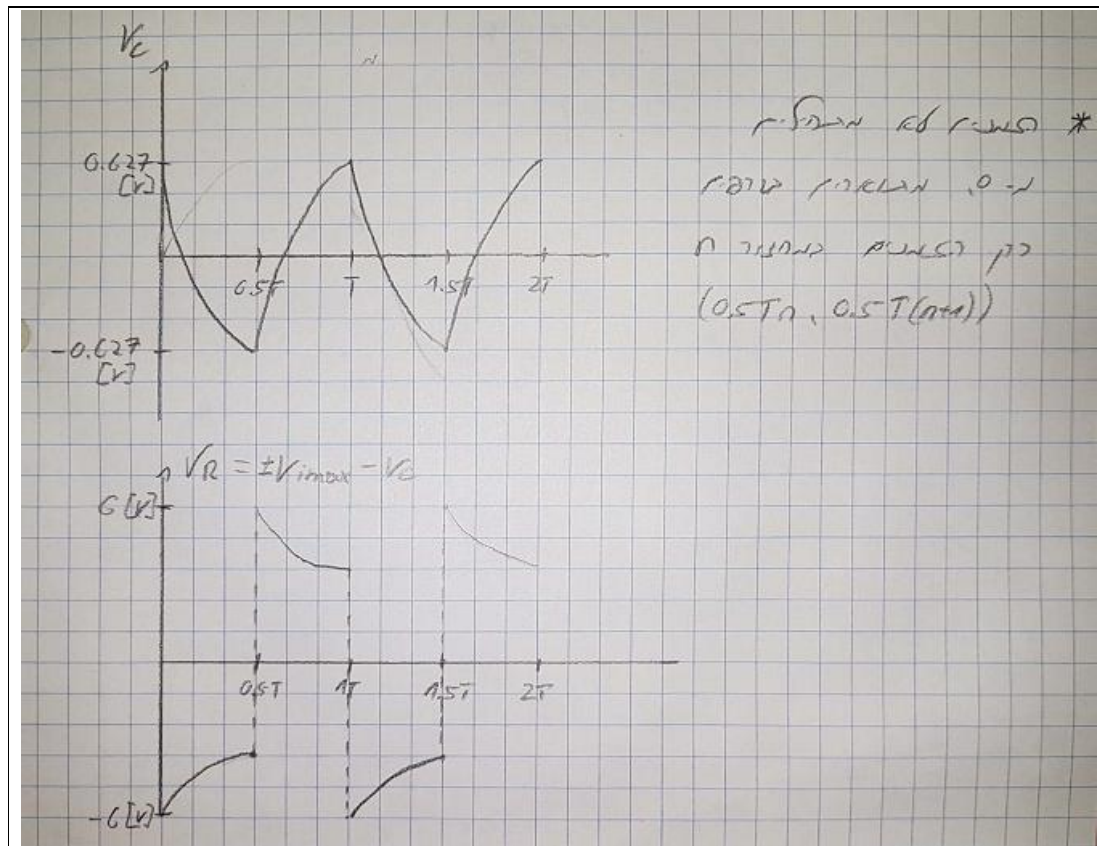 V_C
0.627
[V]
0.5T T 1.5T 2T
-0.627
[V]
* הזמנים לא מתחילים
מ-0, מתוארים בגרפים
רק הזמנים במחזור n
(0.5Tn, 0.5T(n+1))
V_R = ±V_imax - V_C
6[V]
0.5T 1T 1.5T 2T
-6[V]